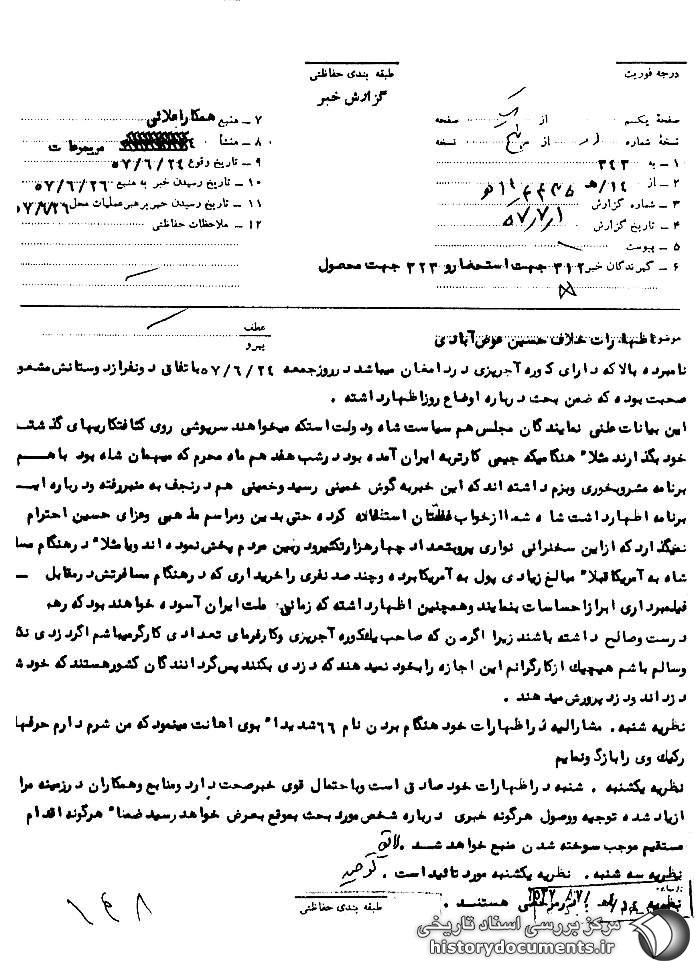 درجه فوریت
طبقه بندی حفاظتی
گزارش خبر
صفحهٔ یکم از صفحه
نسخهٔ شماره از نسخه
۱ – به ۳۴۳
۲ – از ۱۴/هـ
۳ – شماره گزارش
۴ – تاریخ گزارش ۵۷/۷/۱
۵ – پیوست
۶ – گیرندگان خبر ۳۱۲ جهت استحضار و ۳۲۳ جهت محصول
۷ – منبع همکار اعلائی
۸ – منشأ
۹ – تاریخ وقوع ۵۷/۶/۲۴
۱۰ – تاریخ رسیدن خبر به منبع ۵۷/۶/۲۶
۱۱ – تاریخ رسیدن خبر برهبر عملیات محل ۵۷/۶/۲۶
۱۲ – ملاحظات حفاظتی
عطف
پیرو
موضوع اظهارات خلاف حسین عوض آبادی
نامبرده بالا که دارای کوره آجرپزی در دامغان میباشد در روز جمعه ۵۷/۶/۲۴ با تفاق دو نفر از دوستانش مشغو
صحبت بوده که ضمن بحث درباره اوضاع روز اظهار داشته .
این بیانات علنی نمایندگان مجلس هم سیاست شاه و دولت استکه میخواهند سرپوشی روی کثافتکاریهای گذشتـ
خود بگذارند مثلا" هنگامیکه جیمی کارتر به ایران آمده بود در شب هفدهم ماه محرم که میهمان شاه بود با هـم
برنامه مشروبخوری و بزم داشته اند که این خبر به گوش خمینی رسید و خمینی هم در نجف به منبر رفته و درباره ایـ
برنامه اظهار داشت شاه شما از خواب غفلتتان استفاده کرده حتی بدین و مراسم مذهبی و عزای حسین احترام
نمیگذارد که از این سخنرانی نواری پر و بتعداد چهار هزار تکثیر و در بین مردم پخش نموده اند و یا مثلا" در هنگام مسا
شاه به آمریکا قبلا" مبالغ زیادی پول به آمریکا برده و چند صد نفری را خریداری که در هنگام مسافرتش در مقابل
فیلمبرداری ابراز احساسات بنمایند و همچنین اظهار داشته که زمانی ملت ایران آسوده خواهند بود که رهبـ
درست و صالح داشته باشند زیرا اگر من که صاحب یک کوره آجرپزی و کارفرمای تعدادی کارگر میباشم اگر دزدی نکـ
و سالم باشم هیچیک از کارگرانم این اجازه را بخود نمیدهند که دزدی بکنند پس گردانندگان کشور هستند که خود شـ
دزد اند و دزد پرورش میدهند .
نظریه شنبه . مشارالیه در اظهارات خود هنگام بردن نام ۶۶ شدیدا" بوی اهانت مینمود که من شرم دارم حرفها
رکیک وی را بازگو نمایم
نظریه یکشنبه . شنبه در اظهارات خود صادق است و با حتمال قوی خبر صحت دارد و منابع و همکاران در زمینه مرا
ازیاد شده توجیه و وصول هرگونه خبری درباره شخص مورد بحث بموقع بعرض خواهد رسید ضمنا" هرگونه اقدام
مستقیم موجب سوخته شدن منبع خواهد شد .
نظریه سه شنبه . نظریه یکشنبه مورد تائید است .
هستند .
طبقه بندی حفاظتی
۱۴۸
مرکز بررسی اسناد تاریخی
historydocuments.ir